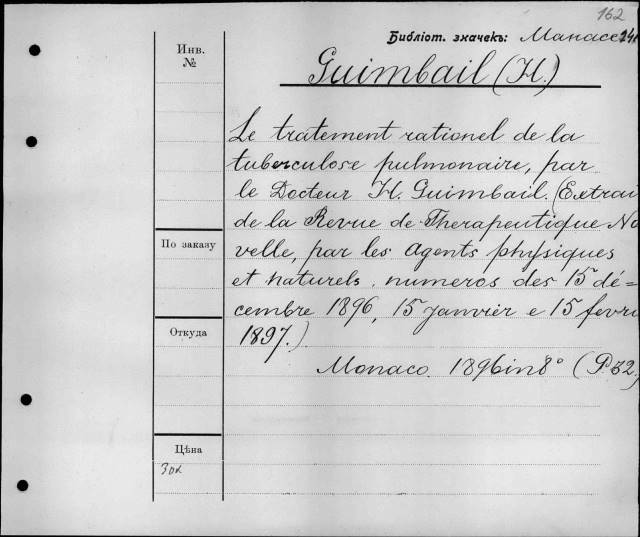 162
Библіот. значекъ: Манасе
Инв.
№
Guimbail (H.)
Le tratement rationel de la
tuberculose pulmonaire, par
le Docteur H. Guimbail. (Extrai
de la Revue de Therapeutique No
velle, par les agents physiques
et naturels, numeros des 15 dé=
cembre 1896, 15 janvier e 15 fevri
1897.)
Monaco. 1896 in 8° (P. 32.)
По заказу
Откуда
Цѣна
30к